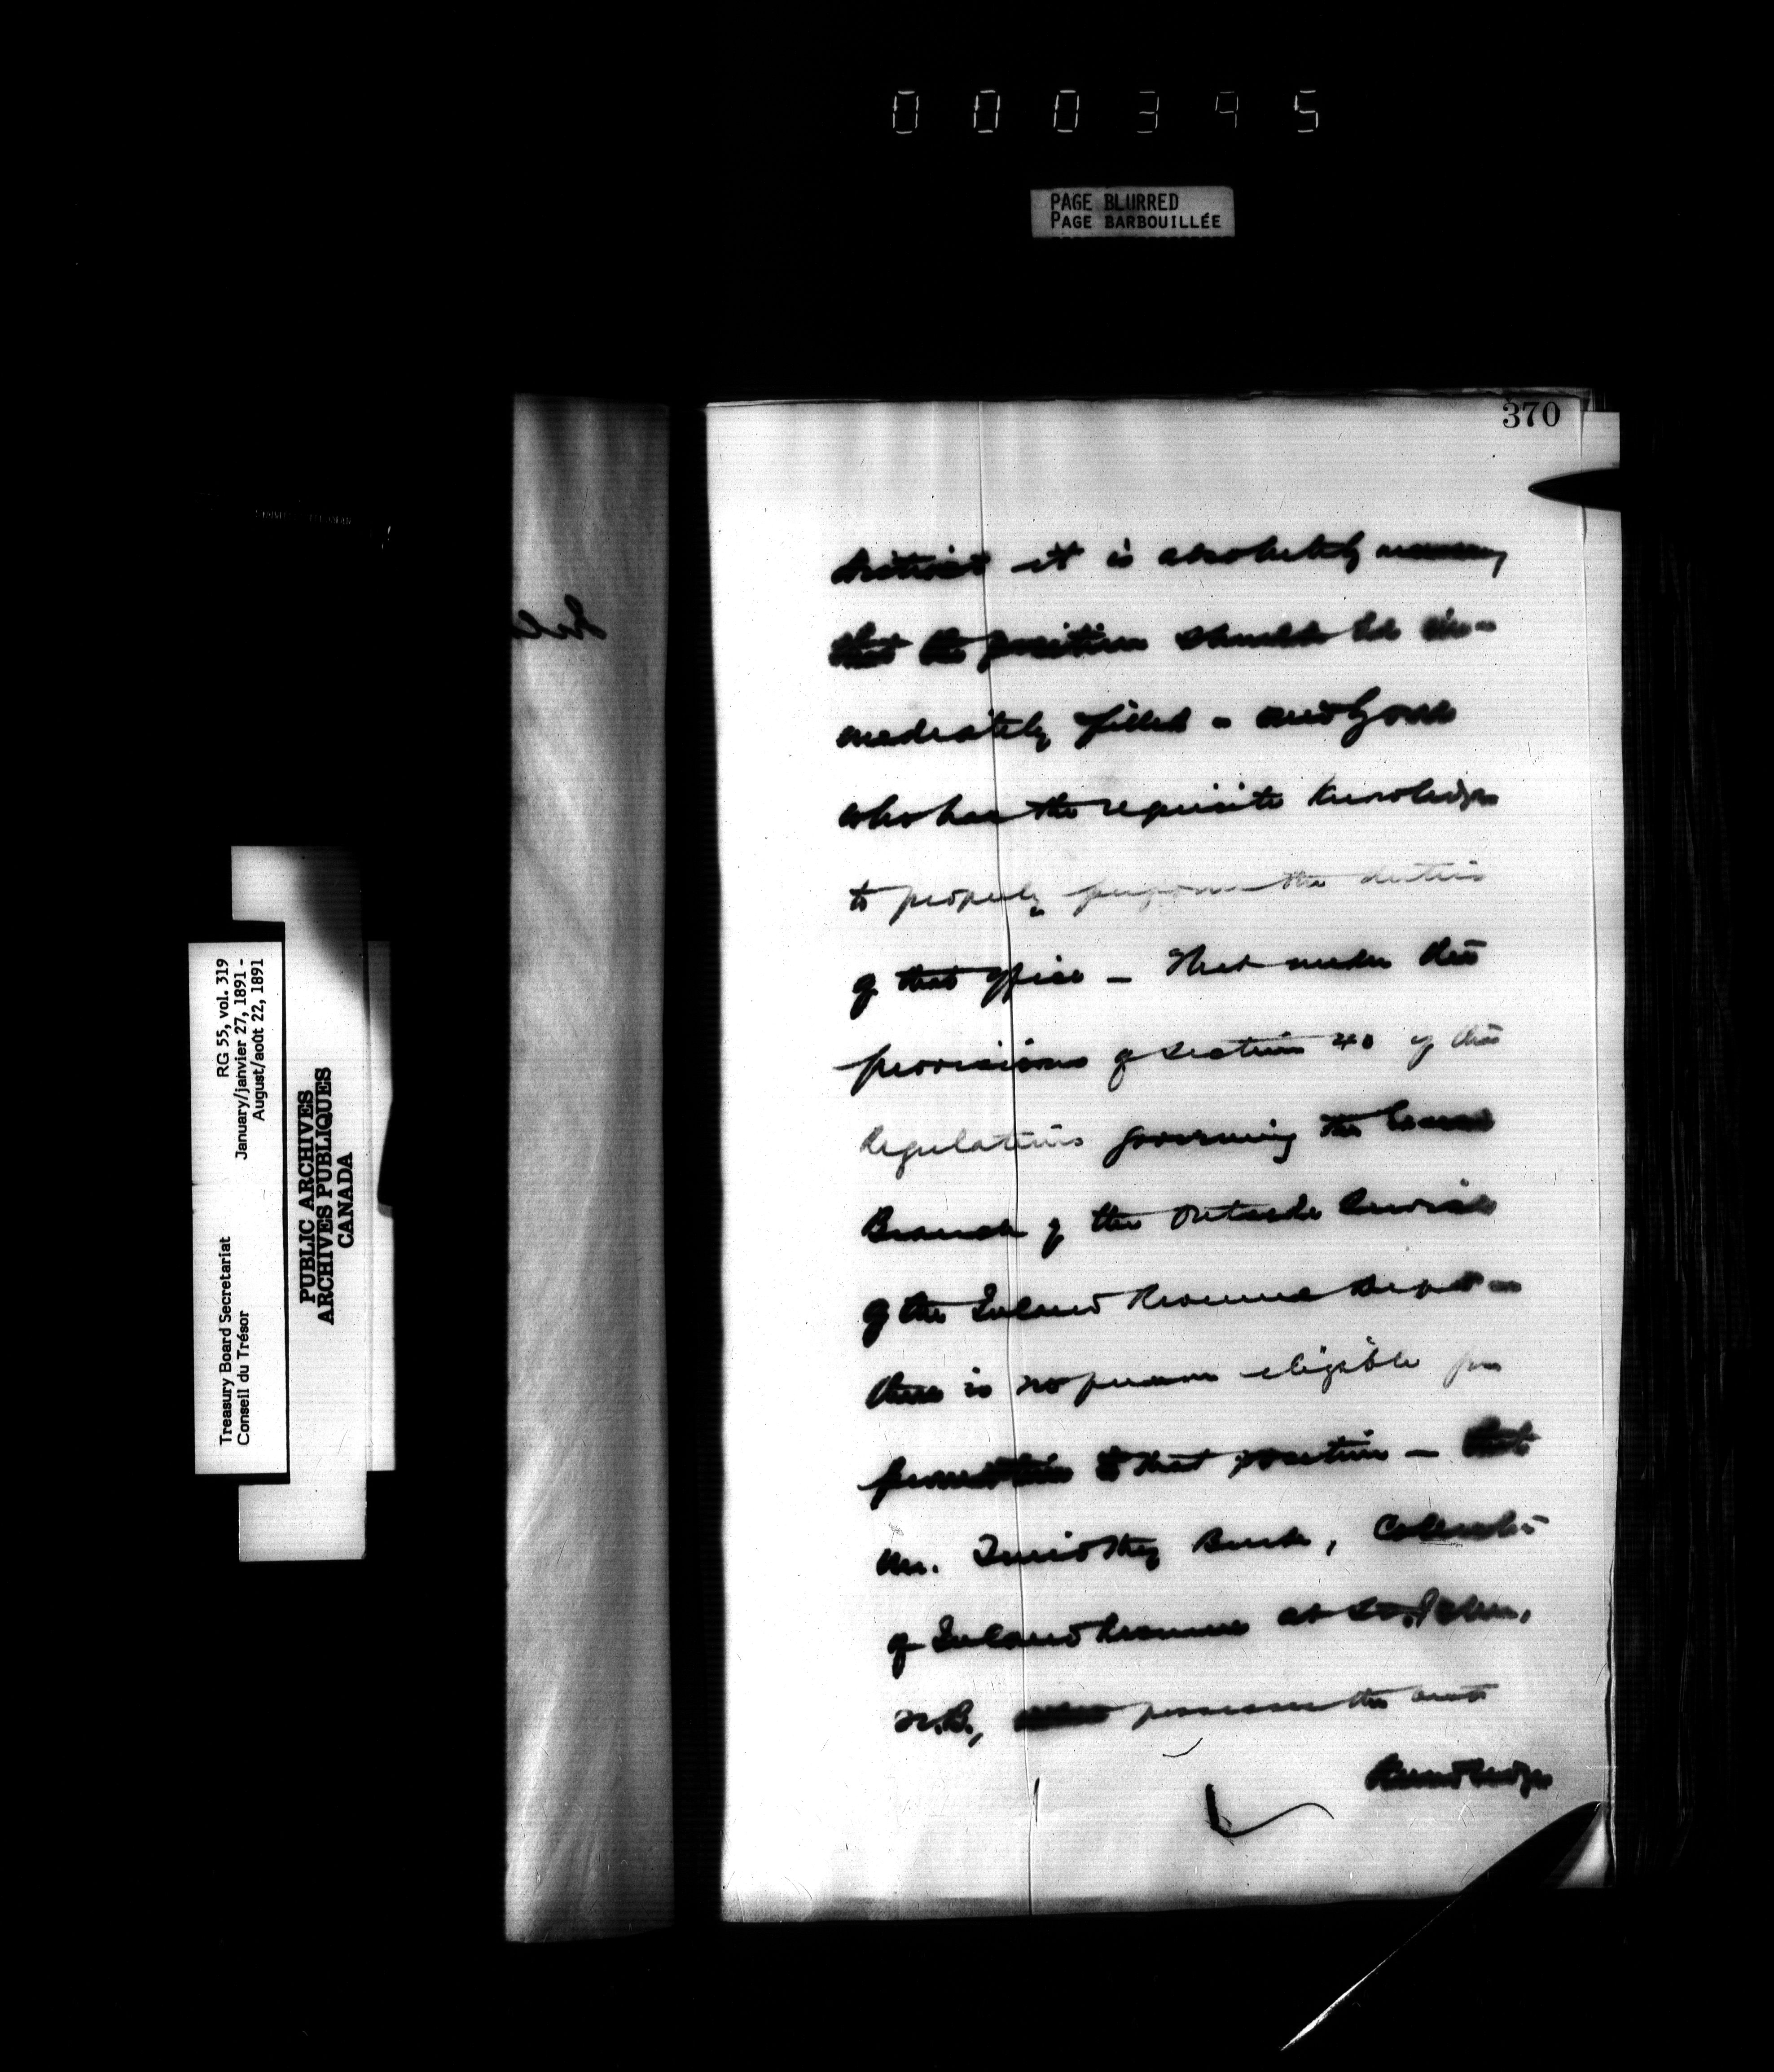 000395
PAGE BLURRED
PAGE BARBOUILLÉE
370
RG 55, vol. 319
January/janvier 27, 1891 -
August/août 22, 1891
Treasury Board Secretariat
Conseil du Trésor
PUBLIC ARCHIVES
ARCHIVES PUBLIQUES
CANADA
District it is absolutely necessary
that the position should be im-
mediately filled - 
who has the requisite knowledge
to properly perform the duties
of that office - That under the
provisions of section 40 of the
Regulations governing the Excise
Branch of the Outside Service
of the Inland Revenue Dept -
there is no person eligible for
promotion to that position - that
Mr. Timothy Burke, Collector
of Inland Revenue at St. John,
N.B., possesses the
Knowledge